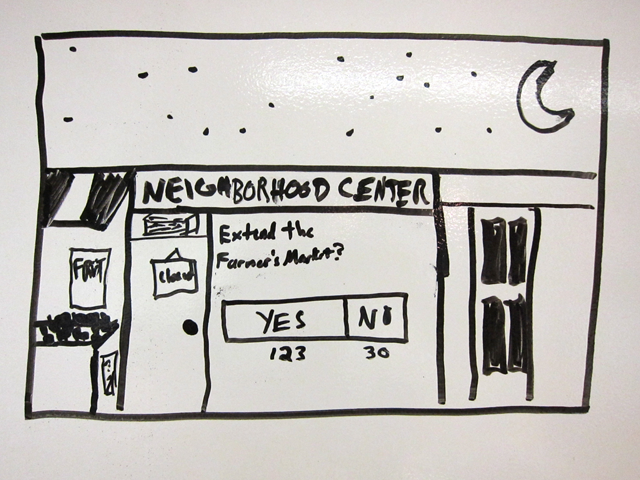 NEIGHBORHOOD CENTER
Extend the
Farmer's Market?
Closed
YES NO
123 30